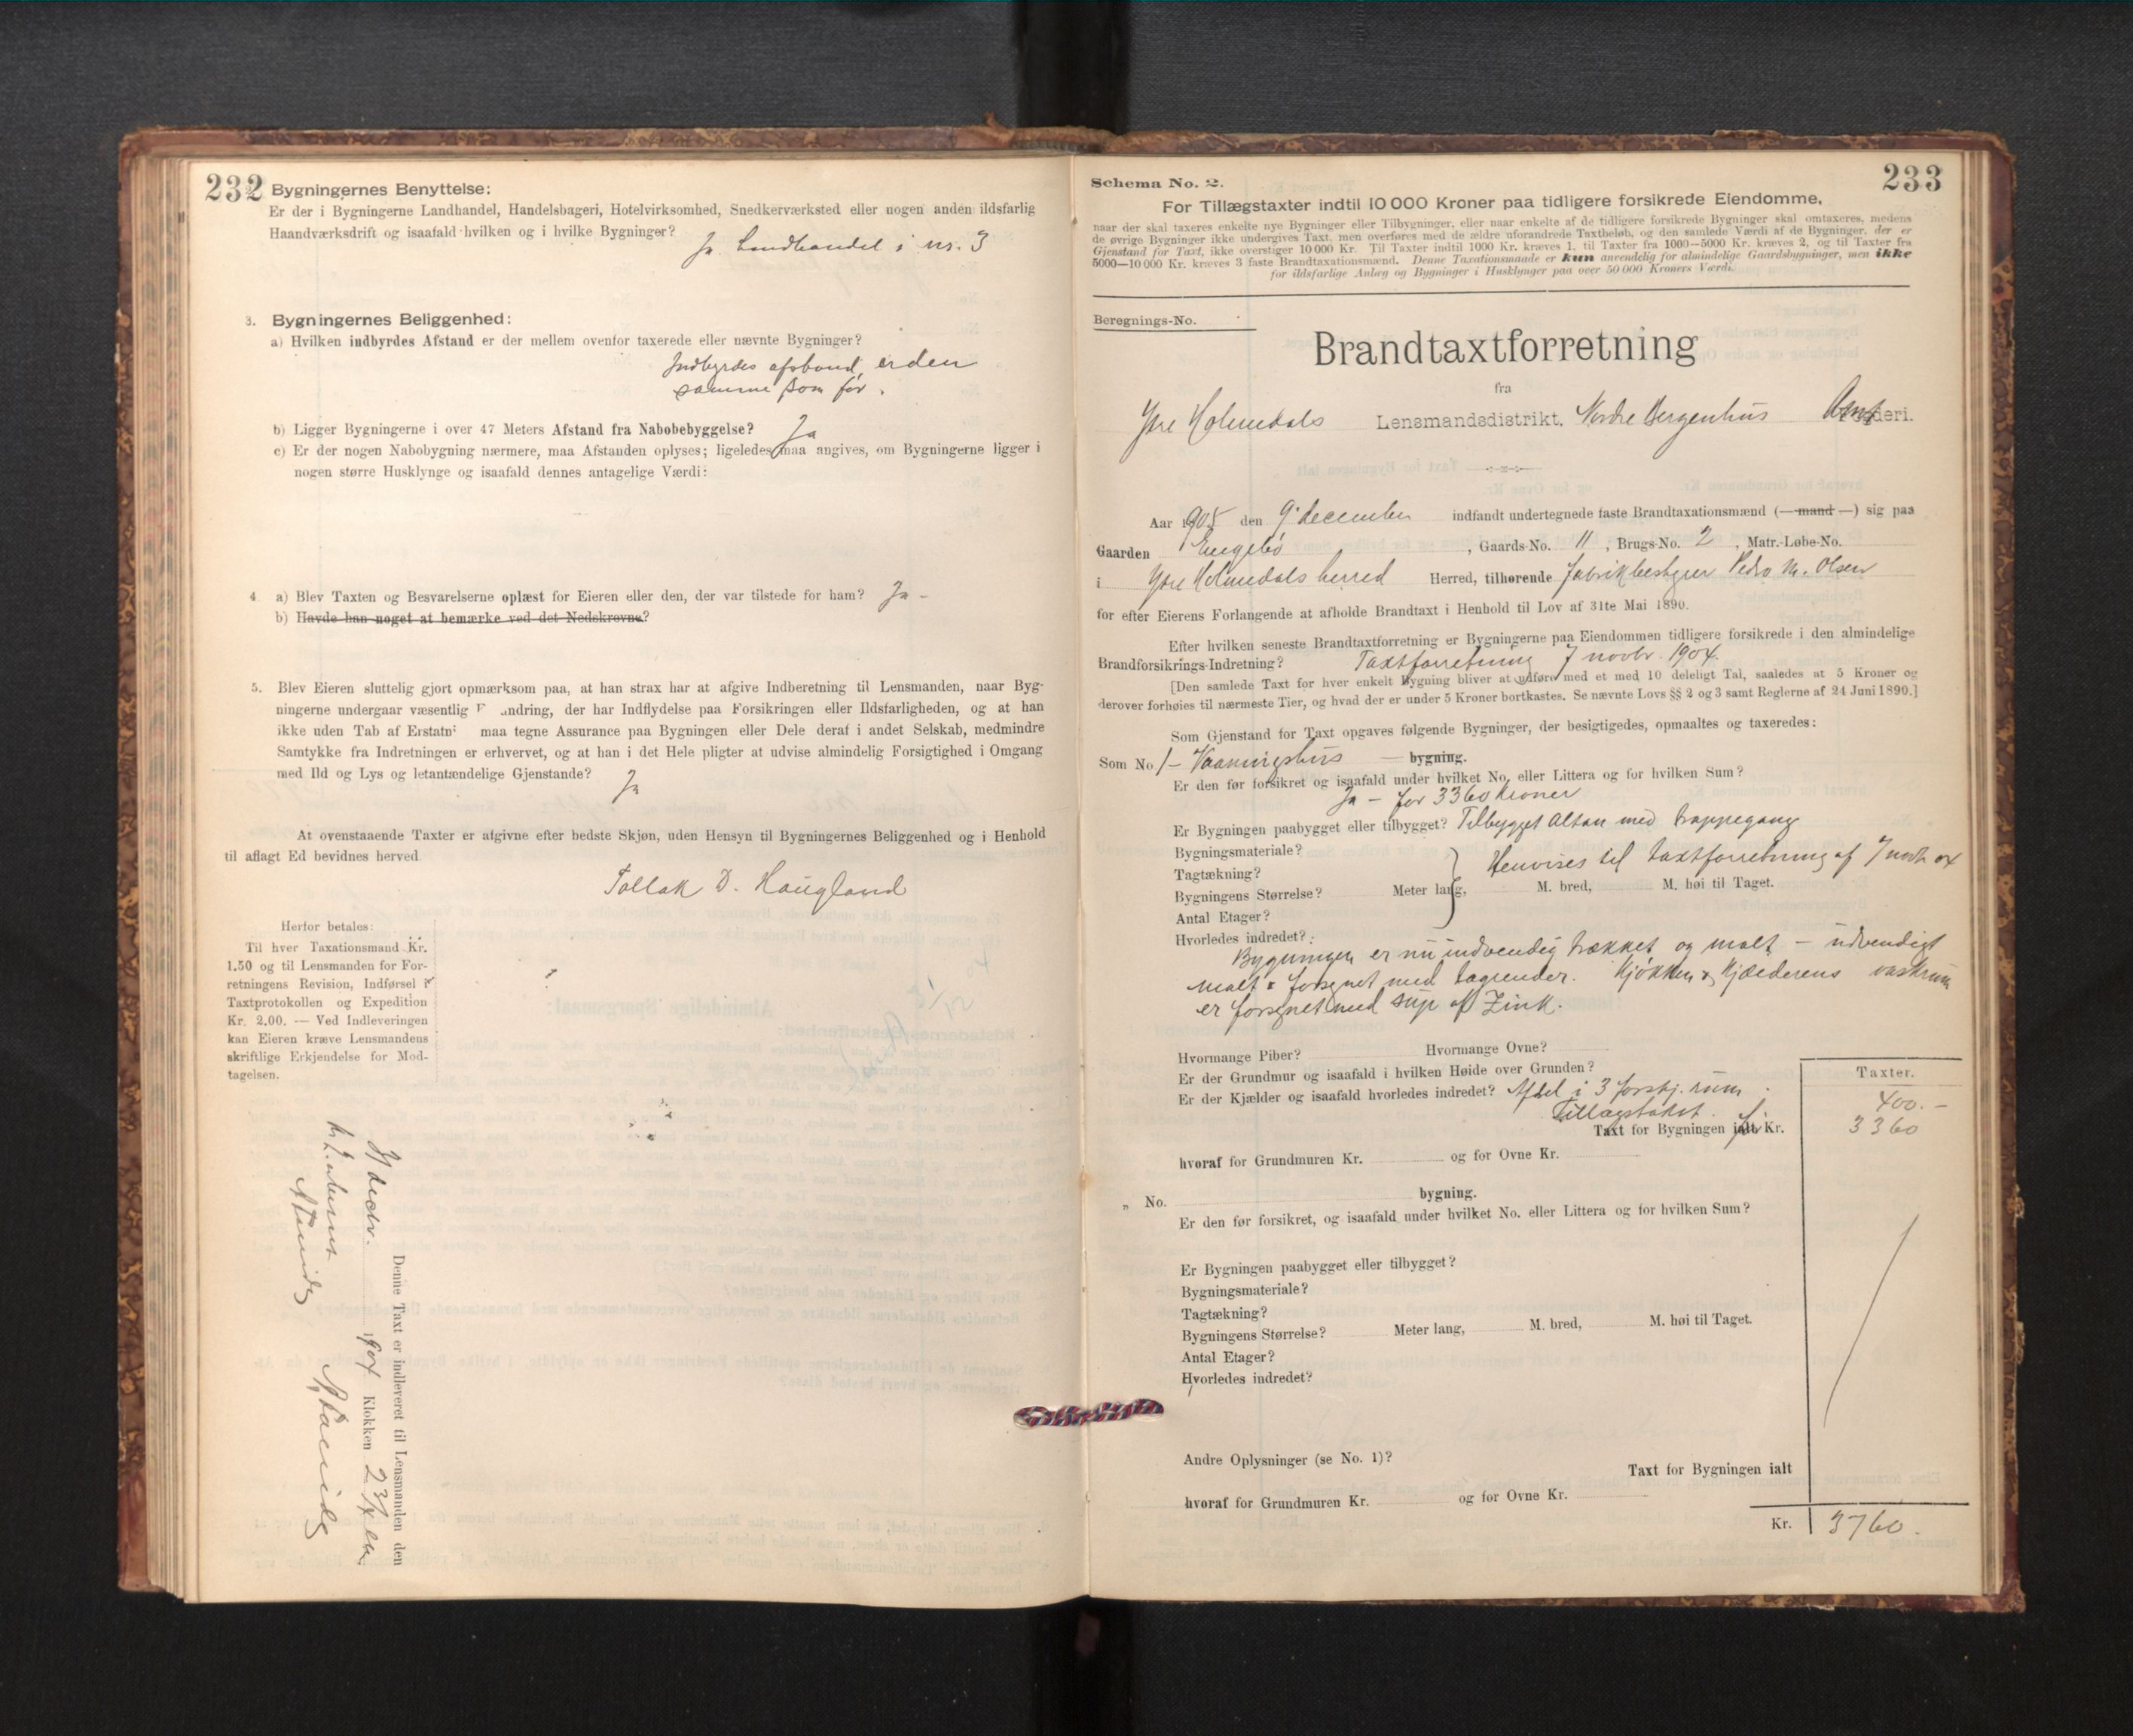 232
Bygningernes Benyttelse:
Er der i Bygningerne Landhandel, Handelsbageri, Hotelvirksomhed, Snedkerværksted eller nogen anden ildsfarlig
Haandværksdrift og isaafald hvilken og i hvilke Bygninger?
Ja. Landhandel i nr. 3
3. Bygningernes Beliggenhed:
a) Hvilken indbyrdes Afstand er der mellem ovenfor taxerede eller nævnte Bygninger?
Indbyrdes afstand, er den
samme som før.
b) Ligger Bygningerne i over 47 Meters Afstand fra Nabobebyggelse? Ja
c) Er der nogen Nabobygning nærmere, maa Afstanden oplyses; ligeledes maa angives, om Bygningerne ligger i
nogen større Husklynge og isaafald dennes antagelige Værdi:
4. a) Blev Taxten og Besvarelserne oplæst for Eieren eller den, der var tilstede for ham? Ja -
b) Havde han noget at bemærke ved det Nedskrevne?
5. Blev Eieren sluttelig gjort opmærksom paa, at han strax har at afgive Indberetning til Lensmanden, naar Byg-
ningerne undergaar væsentlig F andring, der har Indflydelse paa Forsikringen eller Ildsfarligheden, og at han
ikke uden Tab af Erstatn maa tegne Assurance paa Bygningen eller Dele deraf i andet Selskab, medmindre
Samtykke fra Indretningen er erhvervet, og at han i det Hele pligter at udvise almindelig Forsigtighed i Omgang
med Ild og Lys og letantændelige Gjenstande?
Ja
At ovenstaaende Taxter er afgivne efter bedste Skjøn, uden Hensyn til Bygningernes Beliggenhed og i Henhold
til aflagt Ed bevidnes herved
Tollak D. Haugland
Herfor betales:
Til hver Taxationsmand Kr.
1.50 og til Lensmanden for For-
retningens Revision, Indførsel i
Taxtprotokollen og Expedition
Kr. 2.00. — Ved Indleveringen
kan Eieren kræve Lensmandens
skriftlige Erkjendelse for Mod-
tagelsen.
Denne Taxt er indleveret til Lensmanden den
decbr. 190 Klokken 2
233
Schema No. 2.
For Tillægstaxter indtil 10 000 Kroner paa tidligere forsikrede Eiendomme,
naar der skal taxeres enkelte nye Bygninger eller Tilbygninger, eller naar enkelte af de tidligere forsikrede Bygninger skal omtaxeres, medens
de øvrige Bygninger ikke undergives Taxt, men overføres med de ældre uforandrede Taxtbeløb, og den samlede Værdi af de Bygninger, der er
Gjenstand for Taxt, ikke overstiger 10 000 Kr. Til Taxter indtil 1000 Kr. kræves 1, til Taxter fra 1000—5000 Kr. kræves 2, og til Taxter fra
5000—10 000 Kr. kræves 3 faste Brandtaxationsmænd. Denne Taxationsmaade er kun anvendelig for almindelige Gaardsbygninger, men ikke
for ildsfarlige Anlæg og Bygninger i Husklynger paa over 50 000 Kroners Værdi.
Beregnings-No.
Brandtaxtforretning
fra
Ytre Holmedals Lensmandsdistrikt, Nordre Bergenhus Amt deri.
Aar 1905 den 9' december indfandt undertegnede faste Brandtaxationsmænd (— mand —) sig paa
Gaarden Engebø, Gaards-No. 11, Brugs-No. 2, Matr.-Løbe-No.
i Ytre Holmedals herred Herred, tilhørende fabrikbestyrer Pedro M. Olsen
for efter Eierens Forlangende at afholde Brandtaxt i Henhold til Lov af 31te Mai 1890.
Efter hvilken seneste Brandtaxtforretning er Bygningerne paa Eiendommen tidligere forsikrede i den almindelige
Brandforsikrings-Indretning? Taxtforretning 7 novbr. 1904.
[Den samlede Taxt for hver enkelt Bygning bliver at udføre med et med 10 deleligt Tal, saaledes at 5 Kroner og
derover forhøies til nærmeste Tier, og hvad der er under 5 Kroner bortkastes. Se nævnte Lovs §§ 2 og 3 samt Reglerne af 24 Juni 1890.]
Som Gjenstand for Taxt opgaves følgende Bygninger, der besigtigedes, opmaaltes og taxeredes:
Som No 1 - Vaaningshus — bygning.
Er den før forsikret og isaafald under hvilket No. eller Littera og for hvilken Sum?
Ja - for 3360 Kroner
Er Bygningen paabygget eller tilbygget? Tilbygget Altan med trappegang
Bygningsmateriale?
Henvises til taxtforretning af 7 novb 04
Tagtækning?
Bygningens Størrelse? Meter lang, M. bred, M. høi til Taget.
Antal Etager?
Hvorledes indredet?
Bygningen er nu indvendig trækket og malt - udvendigt
malt & forsynet med tagrender. Kjøkken & Kjælderens vaskrum
er forsynet med  af Zink.
Hvormange Piber? Hvormange Ovne?
Er der Grundmur og isaafald i hvilken Høide over Grunden?
Er der Kjælder og isaafald hvorledes indredet? Afdel i 3 forskj. rum
Taxter.
Tillægstakst. 400.-
Taxt for Bygningen ialt Kr. 3360
hvoraf for Grundmuren Kr. og for Ovne Kr.
„ No. bygning.
Er den før forsikret, og isaafald under hvilket No. eller Littera og for hvilken Sum?
Er Bygningen paabygget eller tilbygget?
Bygningsmateriale?
Tagtækning?
Bygningens Størrelse? Meter lang, M. bred, M. høi til Taget.
Antal Etager?
Hvorledes indredet?
Andre Oplysninger (se No. 1)?
Taxt for Bygningen ialt
hvoraf for Grundmuren Kr. og for Ovne Kr.
Kr. 3760.